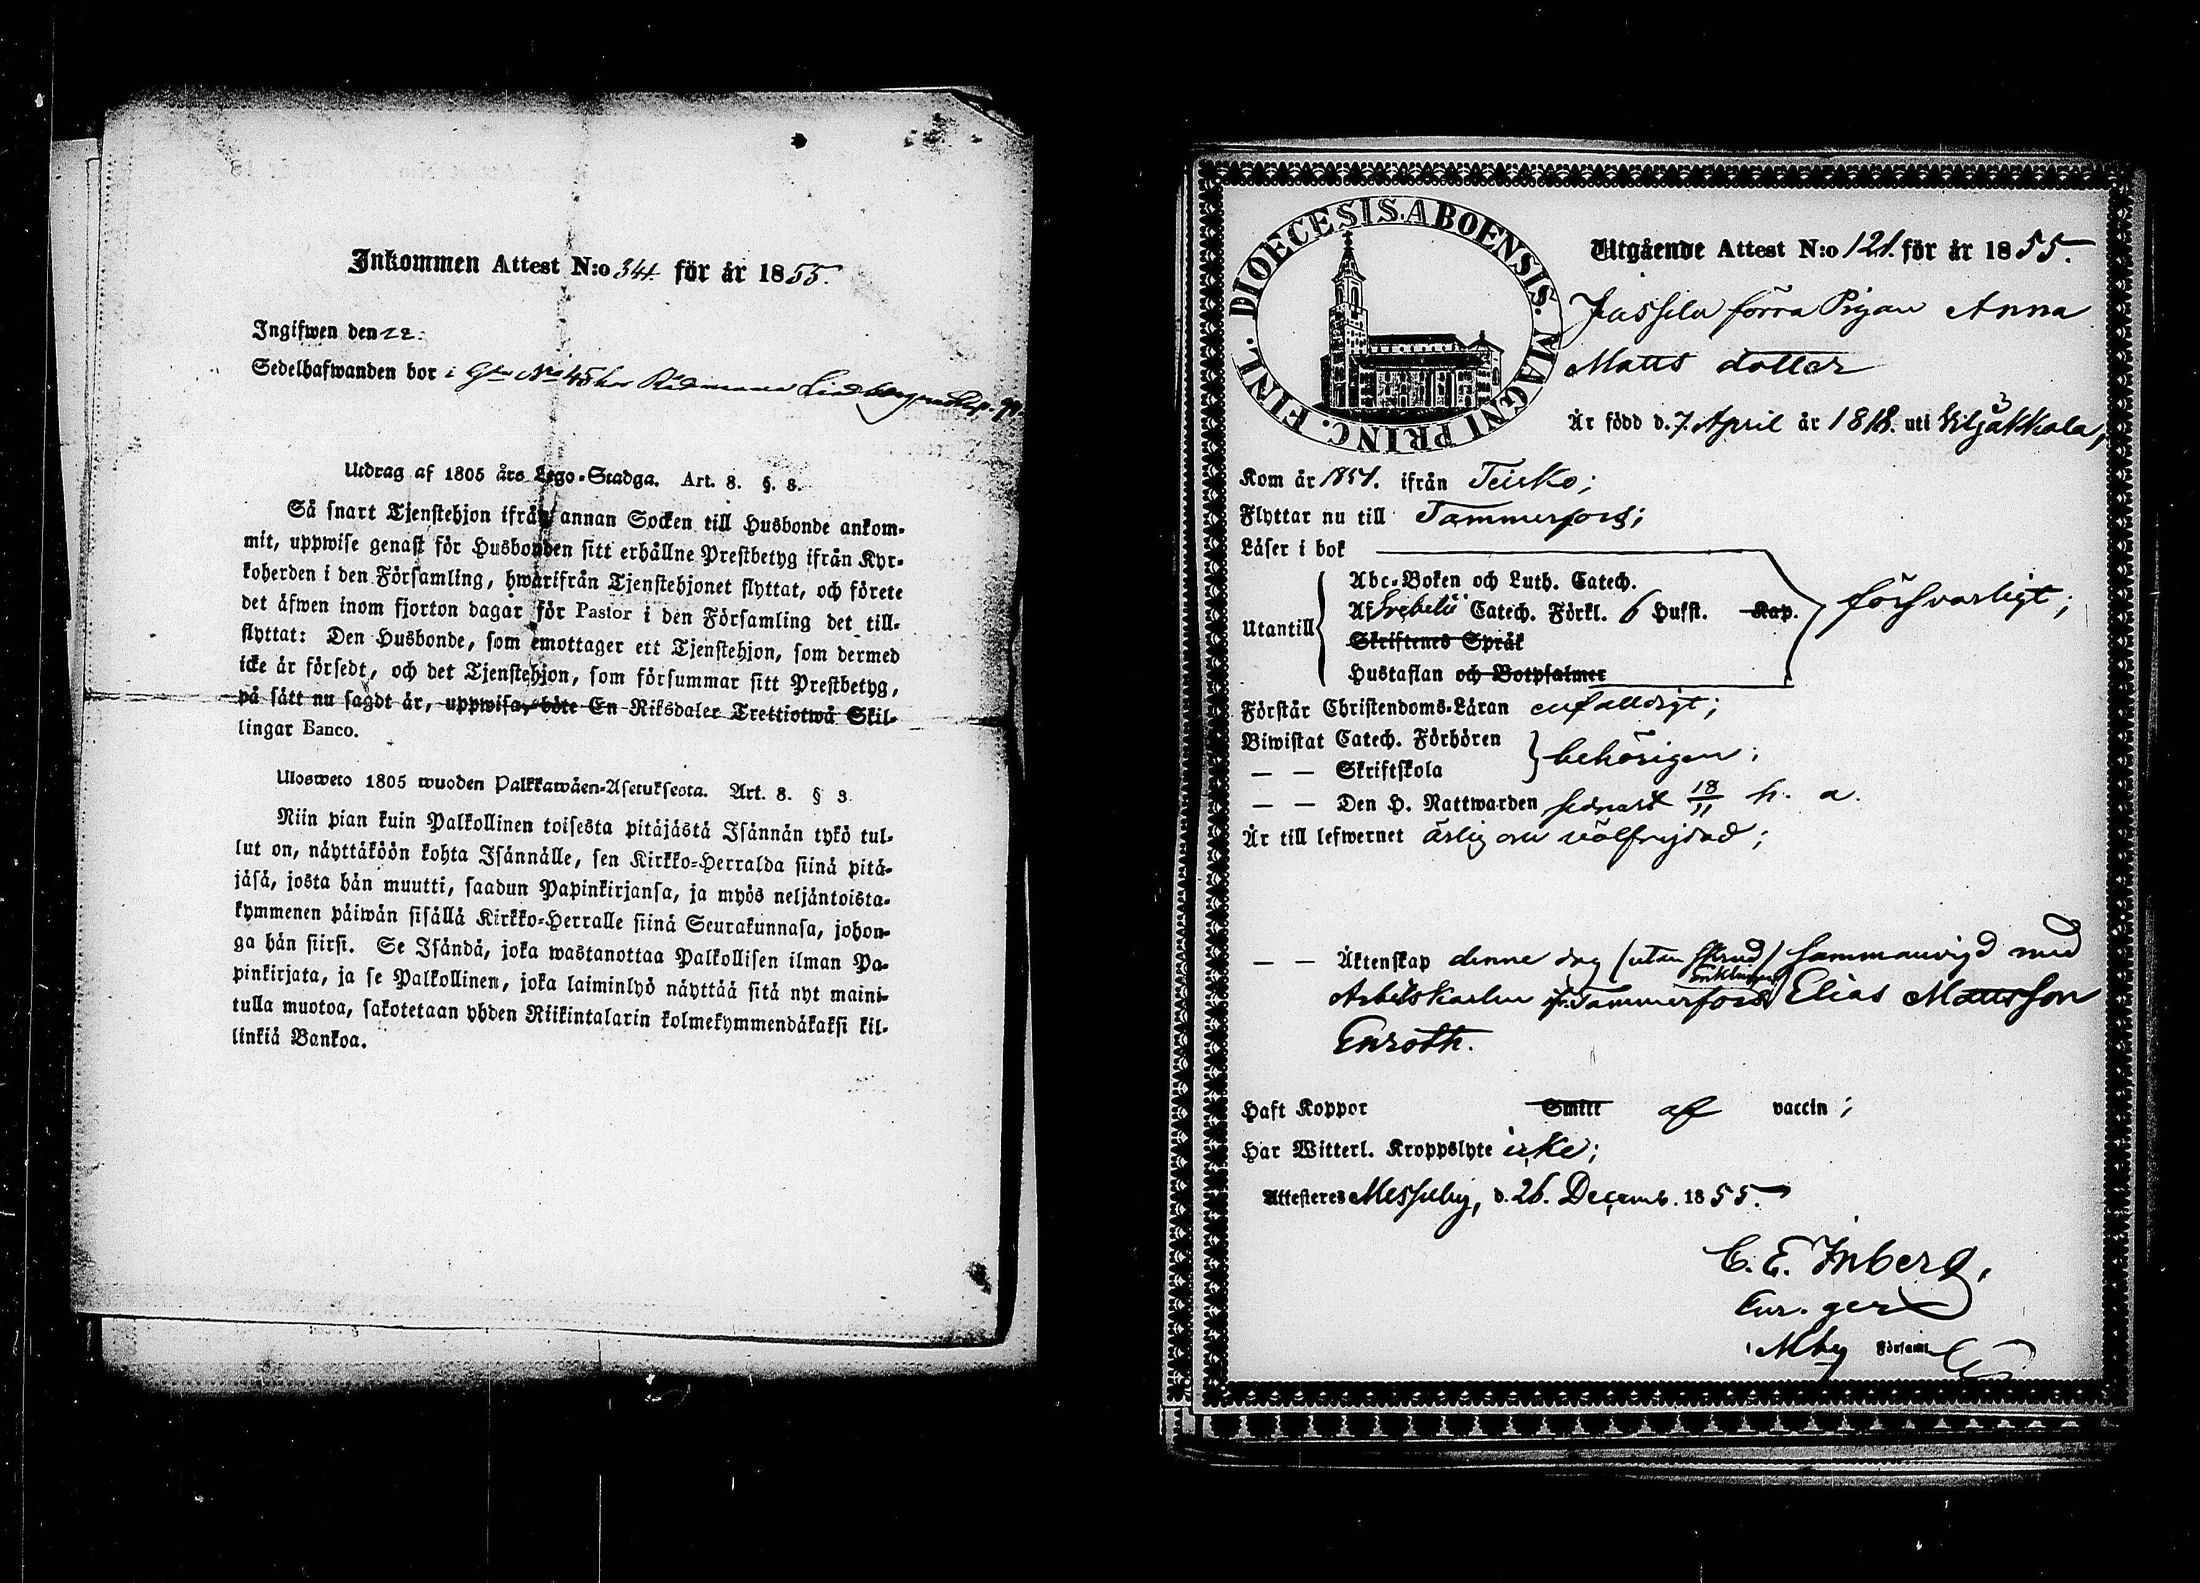 Inkommen Attest N:o 34 för år 1855.
Ingifwen den 22.
Sedelhafwanden bor i Gdn No 45 hos
Utdrag af 1805 års Lego-Stadga. Art. 8. §. 8.
Så snart Tjenstehjon ifrån annan Socken till Husbonde ankom-
mit, uppwise genast för Husbonden sitt erhållne Prestbetyg ifrån Kyr-
koherden i den Församling, hwarifrån Tjenstehjonet flyttat, och förete
det äfwen inom fjorton dagar för Pastor i den Församling det till-
flyttat: Den Husbonde, som emottager ett Tjenstehjon, som dermed
icke är försedt, och det Tjenstehjon, som försummar sitt Prestbetyg,
på sätt nu sagdt är, uppwisa, böte En Riksdaler Trettiotwå Skil-
lingar Banco.
Ulosweto 1805 wuoden Palkkawäen-Asetuksesta. Art. 8. § 8.
Niin pian kuin Palkollinen toisesta pitäjästä Isännän tykö tul-
lut on, näyttäköön kohta Isännälle, sen Kirkko-Herralda siinä pitä-
jäsä, josta hän muutti, saadun Papinkirjansa, ja myös neljäntoista-
kymmenen päiwän sisällä Kirkko-Herralle siinä Seurakunnasa, johon-
ga hän siirsi. Se Isändä, joka wastanottaa Palkollisen ilman Pa-
pinkirjata, ja se Palkollinen, joka laiminlyö näyttää sitä nyt maini-
tulla muotoa, sakotetaan yhden Riikintalarin kolmekymmendäkaksi kil-
linkiä Bankoa.
DIOECESIS. ABOENSIS. MAGNI PRINC. FINL.
Utgående Attest N:o 121. för år 1855.
förra Pigan Anna
Matts dotter
Är född d. 7 April år 1818. uti Wiljakkala,
Kom år 1854. ifrån Teisko;
Flyttar nu till Tammerfors;
Läser i bok
Abc-Boken och Luth. Catech.
Utantill Af Svebelii Catech. Förkl. 6 Hufst. Kap. försvarligt;
Skriftenes Språk
Hustaflan och Botpsalmer
Förstår Christendoms-Läran enfaldigt;
Biwistat Catech. Förhören
— — Skriftskola behörigen;
— — Den H. Nattwarden senast 18/11 h. a.
Är till lefwernet ärlig och välfrejdad;
— — Äktenskap denne dag (utan Skrud) sammanvigd med
Enklingen
Arbetskarlen fr. Tammerfors Elias Mattsson
Enroth.
Haft Koppor Smitt af vaccin;
Har Witterl. Kroppslyte icke;
Attesteras Messuby, d. 26. Decemb. 1855.
C. E. Inberg,
Cur. ger.
i Mby Församl.